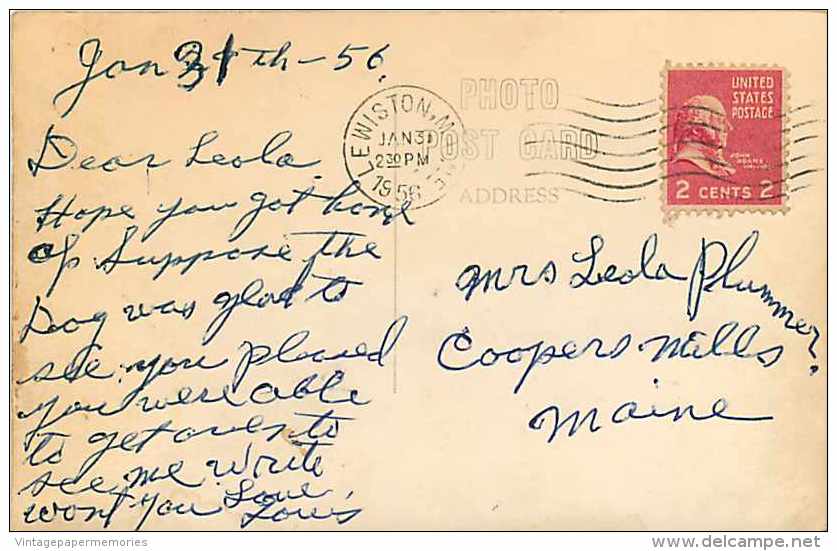 Jan 31th - 56.
LEWISTON, M
JAN 31
2 30 PM
1956
PHOTO
POST CARD
ADDRESS
UNITED
STATES
POSTAGE
JOHN ADAMS
2 CENTS 2
Dear Leola
Hope you got home
ok Suppose the
Dog was glad to
see you pleased
you were able
to get over to
see me write
wont you Love
Louis
Mrs Leola Plummer.
Coopers Mills
Maine
Vintagepapermemories
delcampe.net